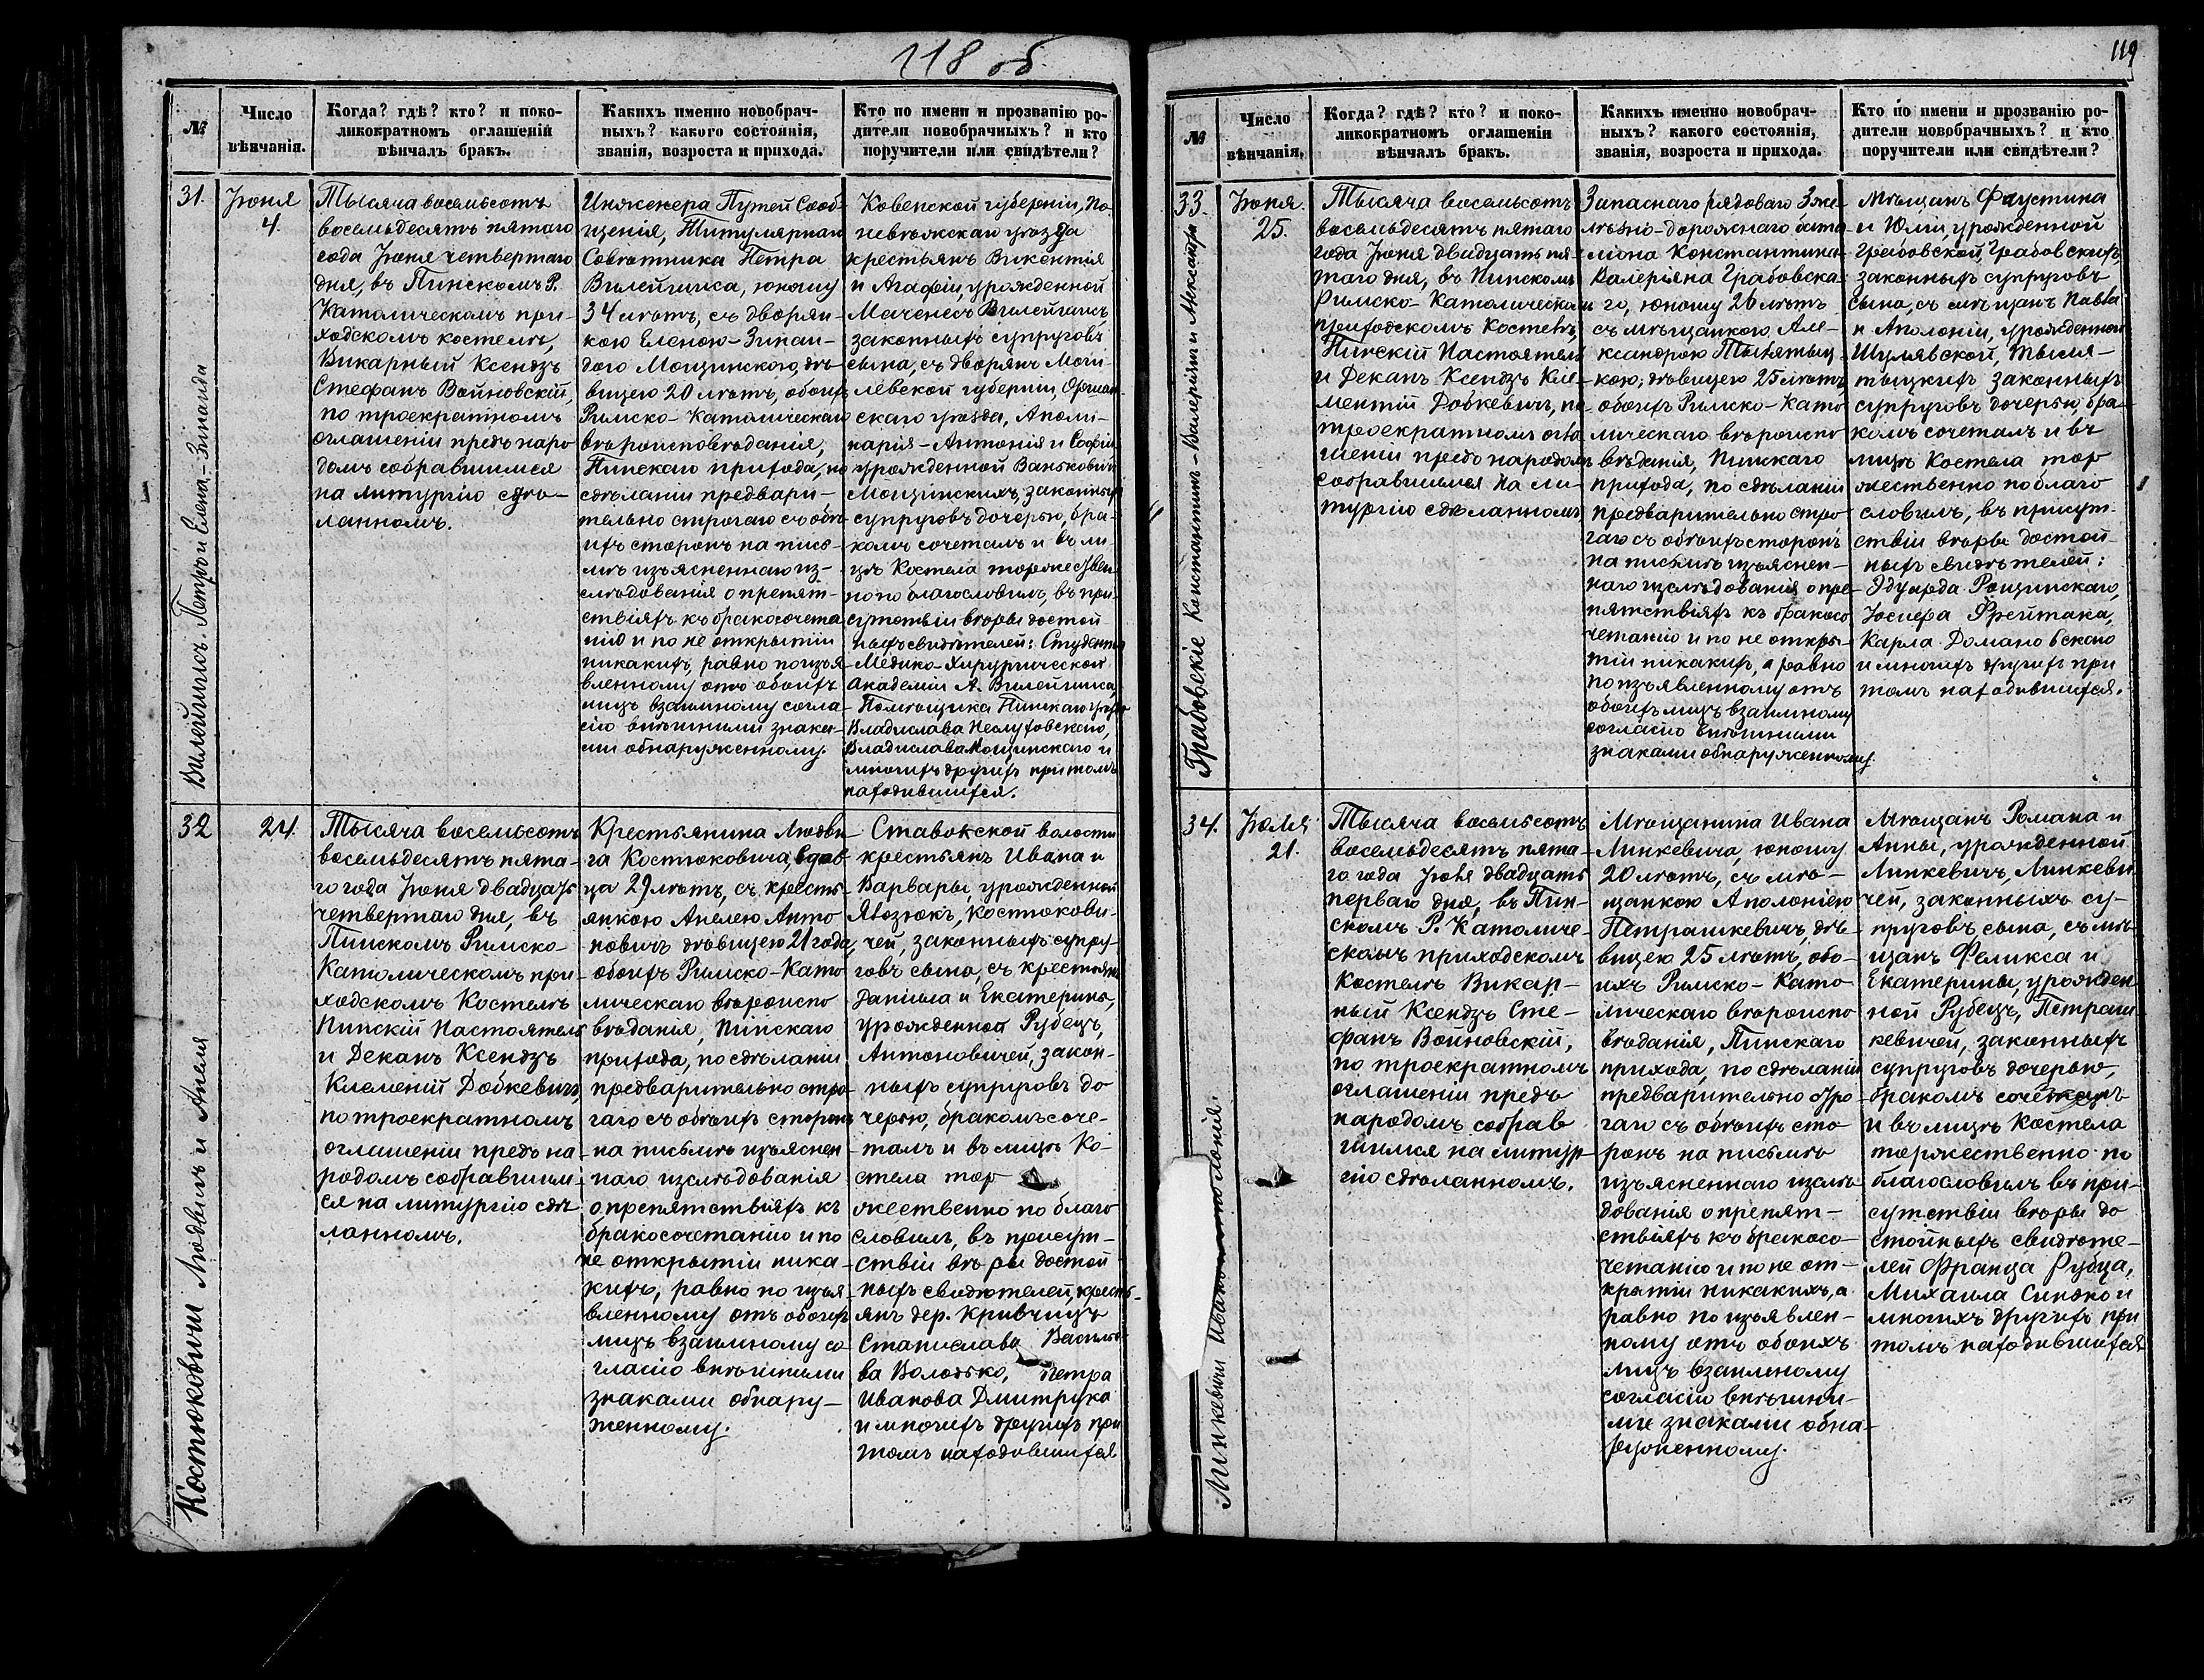 118 об
№
Число
вѣнчанія.
Когда? гдѣ? кто? и поко-
ликократномъ оглашеніи
вѣнчалъ бракъ.
Какихъ именно новобрач-
ныхъ? какого состоянія,
званія, возроста и прихода.
Кто по имени и прозванію ро-
дители новобрачныхъ? и кто
поручители или свидѣтели?
31.
Вилейшисъ. Петръ и Елена-Зинаида
Іюня
4.
Тысяча восемьсотъ
восемьдесятъ пятаго
года Іюня четвертаго
дня, въ Пинскомъ Р.
Католическомъ при-
ходскомъ костелѣ,
Викарный Ксендзъ
Стефанъ Войновскій,
по троекратномъ
оглашеніи предъ наро
домъ собравшимся
на литургію сдѣ-
ланномъ.
Инженера Путей Сооб-
щенія, Титулярнаго
Совѣтника Петра
Вилейшиса, юношу
34 лѣтъ, съ дворян-
кою Еленою-Зинаи-
дою Мощинского, дѣ-
вицею 20 лѣтъ, обоихъ
Римско-Католическаго
вѣроисповѣданія,
Пинскаго прихода, по
сдѣланіи предвари-
тельно строгаго съ обѣ-
ихъ сторонъ на пись-
мѣ изъясненнаго из-
слѣдованія о препят-
ствіяхъ къ бракосочета
нію и по не открытіи
никакихъ, равно по изъя
вленному отъ обоихъ
лицъ взаимному согла-
сію внѣшними знака-
ми обнаруженному.
Ковенской губерніи, По-
невѣжскаго уѣзда
крестьянъ Викентія
и Агафіи, урожденной
Маченесъ Вилейшисъ
законныхъ супруговъ
сына, съ дворянъ Моги-
левской губерніи, Оршан-
скаго уѣзда, Аполи-
нарія-Антонія и Софіи
урожденной Ваньковичъ
Мощинскихъ, законныхъ
супруговъ дочерью, бра-
комъ сочеталъ и въ ли-
цѣ Костела торжествен
но по благословилъ, въ при-
сутствіи вѣры достой
ныхъ свидѣтелей: Студента
Медико-Хирургической
академіи А. Вилейшиса,
Помѣщика Пинскаго уѣзда
Владислава Неслуховскаго,
Владислава Мощинскаго и
многихъ другихъ при томъ
находившихся.
32
Костюковичи Людвигъ и Анеля
24.
Тысяча восемьсотъ
восемьдесятъ пята-
го года Іюня двадцать
четвертаго дня, въ
Пинскомъ Римско-
Католическомъ при-
ходскомъ Костелѣ
Пинскій Настоятель
и Деканъ Ксендзъ
Клеменій Добкевичъ,
по троекратномъ
оглашеніи предъ на
родомъ собравшим-
ся на литургію сдѣ
ланномъ.
Крестьянина Людви-
га Костюковича, вдов
ца 29 лѣтъ, съ кресть-
янкою Анелею Анто
новичъ дѣвицею 21 года,
обоихъ Римско-Като
лическаго вѣроиспо
вѣданія, Пинскаго
прихода, по сдѣланіи
предварительно стро-
гаго съ обѣихъ сторонъ
на письмѣ изъяснен
наго изслѣдованія
о препятствіяхъ къ
бракосочетанію и по
не открытіи ника-
кихъ, равно по изъя-
вленному отъ обоихъ
лицъ взаимному со
гласію внѣшними
знаками обнару-
женному.
Ставокской волости
крестьянъ Ивана и
Варвары, урожденной
Явзюкъ, Костюкови-
чей, законныхъ супру-
говъ сына, съ крестьянъ
Даніила и Екатерины,
урожденной Рубецъ,
Антоновичей, закон-
ныхъ супруговъ до
черью, бракомъ соче-
талъ и въ лицѣ Ко-
стела тор
жественно по благо
словилъ, въ присут-
ствіи вѣры достой
ныхъ свидѣтелей, кресть-
янъ дер. Кривчицъ
Станислава Василье-
ва Володько, Петра
Иванова Дмитрука
и многихъ другихъ при
томъ находившихся
119
№
Число
вѣнчанія.
Когда? гдѣ? кто? и поко-
ликократномъ оглашеніи
вѣнчалъ бракъ.
Какихъ именно новобрач-
ныхъ? какого состоянія,
званія, возроста и прихода.
Кто по имени и прозванію ро-
дители новобрачныхъ? и кто
поручители или свидѣтели?
33.
Грабовскіе Константинъ-Валеріянъ и Александра
Іюня
25.
Тысяча восемьсотъ
восемьдесятъ пятаго
года Іюня двадцать пя-
таго дня, въ Пинскомъ
Римско-Католическомъ
приходскомъ Костелѣ,
Пинскій Настоятель
и Деканъ Ксендзъ Кле-
ментій Добкевичъ, по
троекратномъ огла
шеніи предъ народомъ
собравшимся на ли-
тургію сдѣланномъ,
Запаснаго рядоваго З. же-
лѣзно-дорожнаго бата
ліона Константина-
Валеріяна Грабовска-
го, юношу 26 лѣтъ
съ мѣщанкою Але-
ксандрою Тысятыц-
кою, дѣвицею 25 лѣтъ,
обоихъ Римско-Като
лическаго вѣроиспо
вѣданія, Пинскаго
прихода, по сдѣланіи
предварительно стро
гаго съ обѣихъ сторонъ
на письмѣ изъяснен-
наго изслѣдованія о пре-
пятствіяхъ къ бракосо
четанію и по не откры-
тіи никакихъ, а равно
по изъявленному отъ
обоихъ лицъ взаимному
согласію внѣшними
знаками обнаруженному.
Мѣщанъ Фаустина
и Юліи, урожденной
Грабовской, Грабовскихъ,
законныхъ супруговъ
сына, съ мѣщанъ Павла
и Аполоніи, урожденной
Шулявской, Тыся-
тыцкихъ законныхъ
супруговъ дочерью, бра-
комъ сочеталъ и въ
лицѣ Костела тор
жественно по благо
словилъ, въ присут-
ствіи вѣры достой-
ныхъ свидѣтелей:
Эдуарда Рощинскаго,
Іосифа Фрейтака,
Карла Домановскаго
и многихъ другихъ при
томъ находившихся.
34.
Линкевичи Иванъ и Аполонія.
Іюля
21.
Тысяча восемьсотъ
восемьдесятъ пята-
го года Іюля двадцать
перваго дня, въ Пин-
скомъ Р. Католиче-
скомъ приходскомъ
Костелѣ Викар-
ный Ксендзъ Сте-
фанъ Войновскій,
по троекратномъ
оглашеніи предъ
народомъ собрав
шимся на литур-
гію сдѣланномъ.
Мѣщанина Ивана
Линкевича, юношу
20 лѣтъ, съ мѣ-
щанкою Аполоніею
Петрашкевичъ, дѣ-
вицею 25 лѣтъ, обо-
ихъ Римско-Като
лическаго вѣроиспо
вѣданія, Пинскаго
прихода, по сдѣланіи
предварительно стро
гаго съ обѣихъ сто
ронъ на письмѣ
изъясненнаго изслѣ
дованія о препят-
ствіяхъ къ бракосо-
четанію и по не от-
крытіи никакихъ, а
равно по изъявлен-
ному отъ обоихъ
лицъ взаимному
согласію внѣшни-
ми знаками обна-
руженному.
Мѣщанъ Романа и
Анны, урожденной
Линкевичъ, Линкеви
чей, законныхъ су-
пруговъ, сына, съ мѣ-
щанъ Феликса и
Екатерины, урожден
ной Рубецъ, Петраш
кевичей, законныхъ
супруговъ дочерью,
бракомъ сочеталъ
и въ лицѣ Костела
торжественно по
благословилъ въ при-
сутствіи вѣры до
стойныхъ свидѣте-
лей Франца Рубца,
Михаила Синяко и
многихъ другихъ при
томъ находившихся